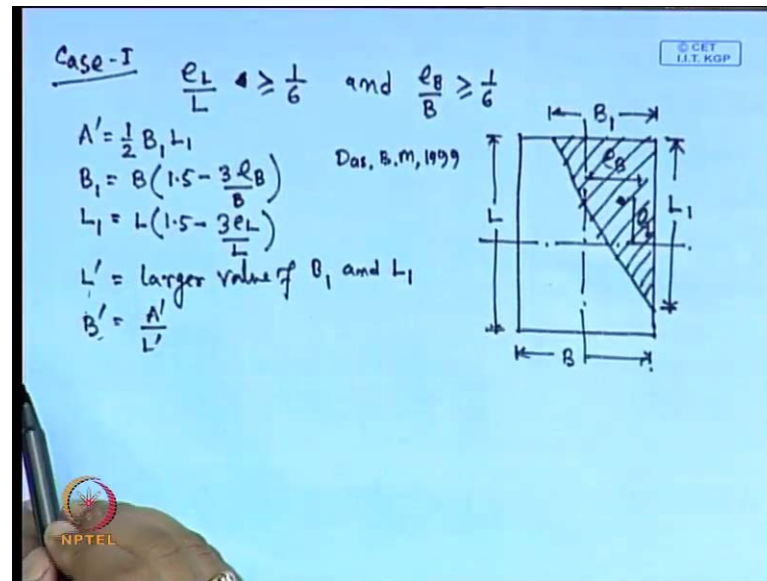 Case-I
eL/L ≥ 1/6 and eB/B ≥ 1/6
A' = 1/2 B1 L1
B1 = B(1.5 - 3eB/B)
Das, B.M, 1999
L1 = L(1.5 - 3eL/L)
L' = larger value of B1 and L1
B' = A'/L'
© CET
I.I.T. KGP
B1
eB
L
L1
B
NPTEL